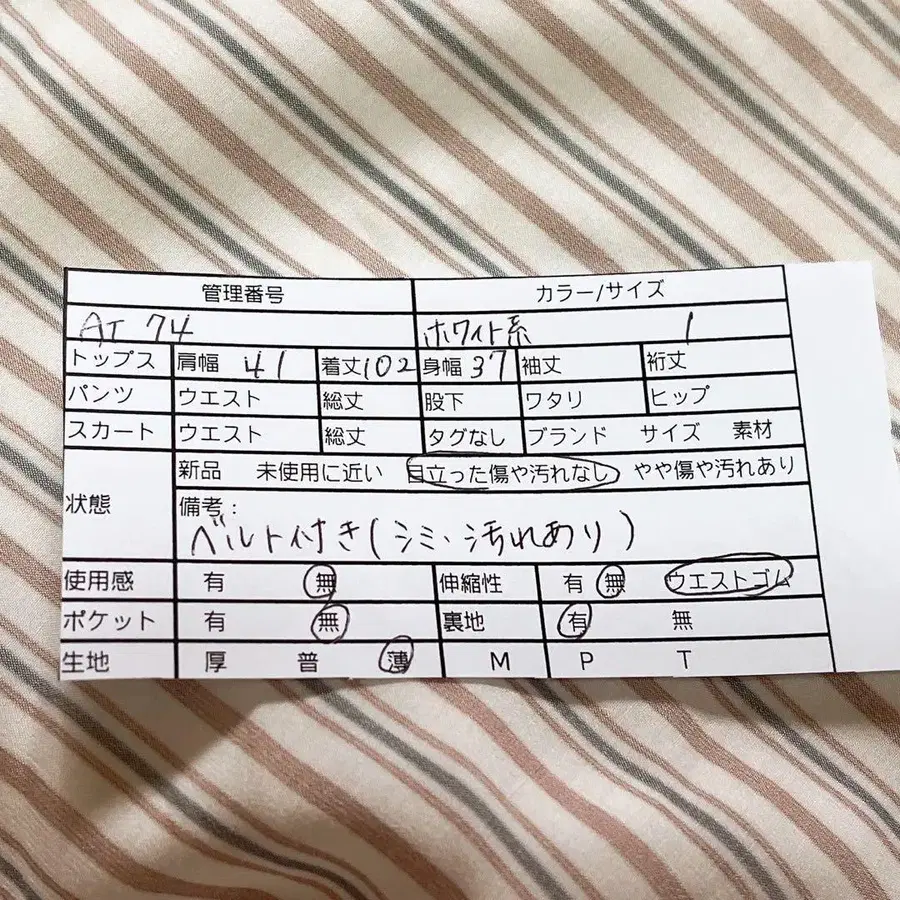 管理番号 カラー/サイズ
AT 74 ホワイト系 1
トップス 肩幅 41 着丈 102 身幅 37 袖丈 裄丈
パンツ ウエスト 総丈 股下 ワタリ ヒップ
スカート ウエスト 総丈 タグなし ブランド サイズ 素材
状態 新品 未使用に近い 目立った傷や汚れなし やや傷や汚れあり
備考:
ベルト付き(シミ、汚れあり)
使用感 有 無 伸縮性 有 無 ウエストゴム
ポケット 有 無 裏地 有 無
生地 厚 普 薄 M P T